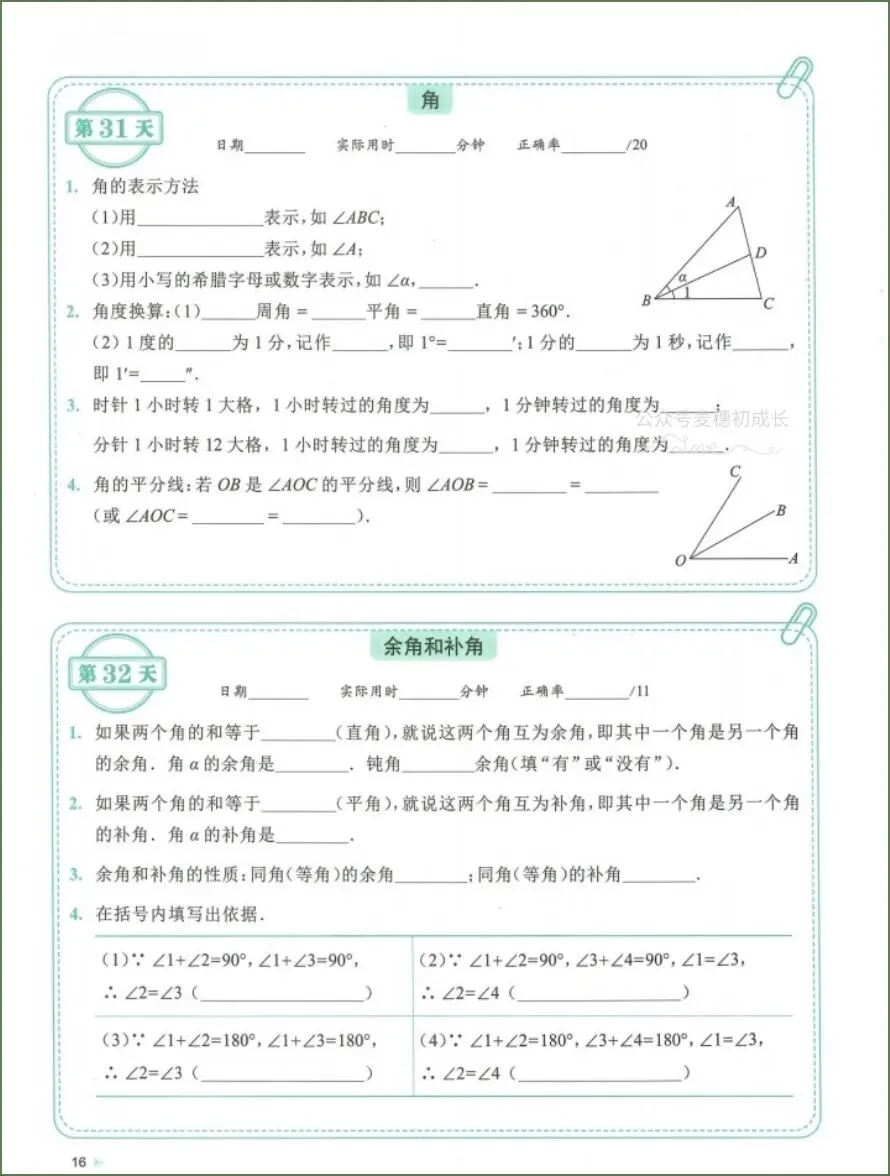 角
第31天
日期________ 实际用时________分钟 正确率________/20
1. 角的表示方法
(1)用______________表示,如∠ABC;
(2)用______________表示,如∠A;
(3)用小写的希腊字母或数字表示,如∠α,______.
A
D
α
1
B
C
2. 角度换算:(1)______周角=______平角=______直角=360°.
(2)1度的______为1分,记作______,即1°=_______′;1分的______为1秒,记作______,
即1′=_____″.
3. 时针1小时转1大格,1小时转过的角度为______,1分钟转过的角度为______;
公众号麦穗初成长
分针1小时转12大格,1小时转过的角度为______,1分钟转过的角度为______.
Love
4. 角的平分线:若OB是∠AOC的平分线,则∠AOB=________=________
(或∠AOC=________=________).
C
B
O
A
余角和补角
第32天
日期________ 实际用时________分钟 正确率________/11
1. 如果两个角的和等于________(直角),就说这两个角互为余角,即其中一个角是另一个角
的余角.角α的余角是________.钝角________余角(填“有”或“没有”).
2. 如果两个角的和等于________(平角),就说这两个角互为补角,即其中一个角是另一个角
的补角.角α的补角是________.
3. 余角和补角的性质:同角(等角)的余角________;同角(等角)的补角________.
4. 在括号内填写出依据.
(1)∵∠1+∠2=90°,∠1+∠3=90°,
∴∠2=∠3(__________________)
(2)∵∠1+∠2=90°,∠3+∠4=90°,∠1=∠3,
∴∠2=∠4(__________________)
(3)∵∠1+∠2=180°,∠1+∠3=180°,
∴∠2=∠3(__________________)
(4)∵∠1+∠2=180°,∠3+∠4=180°,∠1=∠3,
∴∠2=∠4(__________________)
16